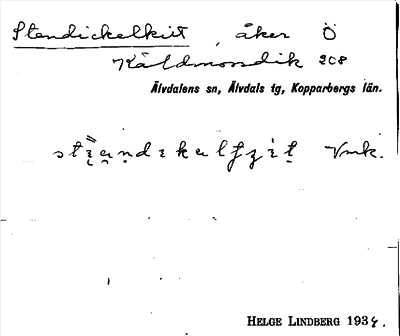 Stendickelkiit, åker Ö
Källdmossdik 208
Älvdalens sn, Älvdals tg, Kopparbergs län.
Vmk.
HELGE LINDBERG 1934.